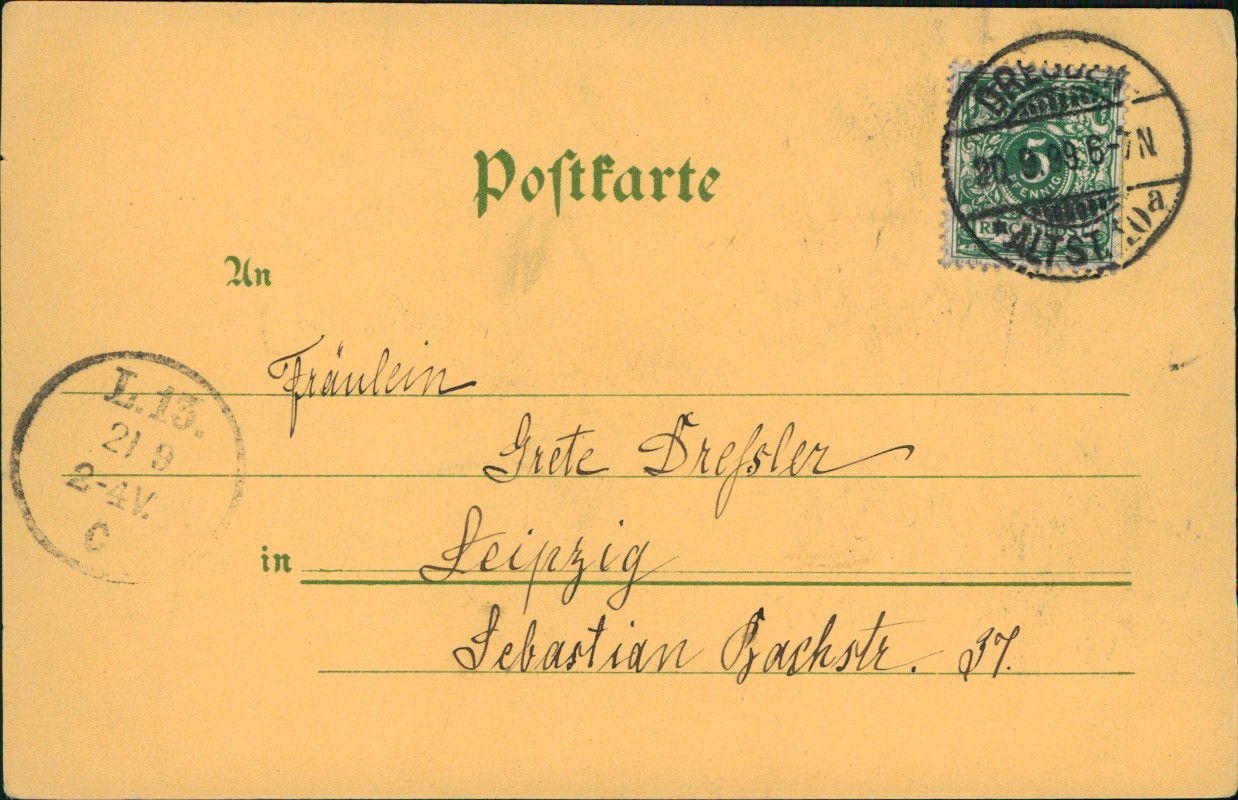 Postkarte
DRESDEN
20.9.99.6-7N
*ALTST.10a
5
PFENNIG
REICHSPOST
An
L.13.
21 9
2-4V.
C
Fräulein
Grete Dreſsler
in Leipzig
Sebastian Bachstr. 37.